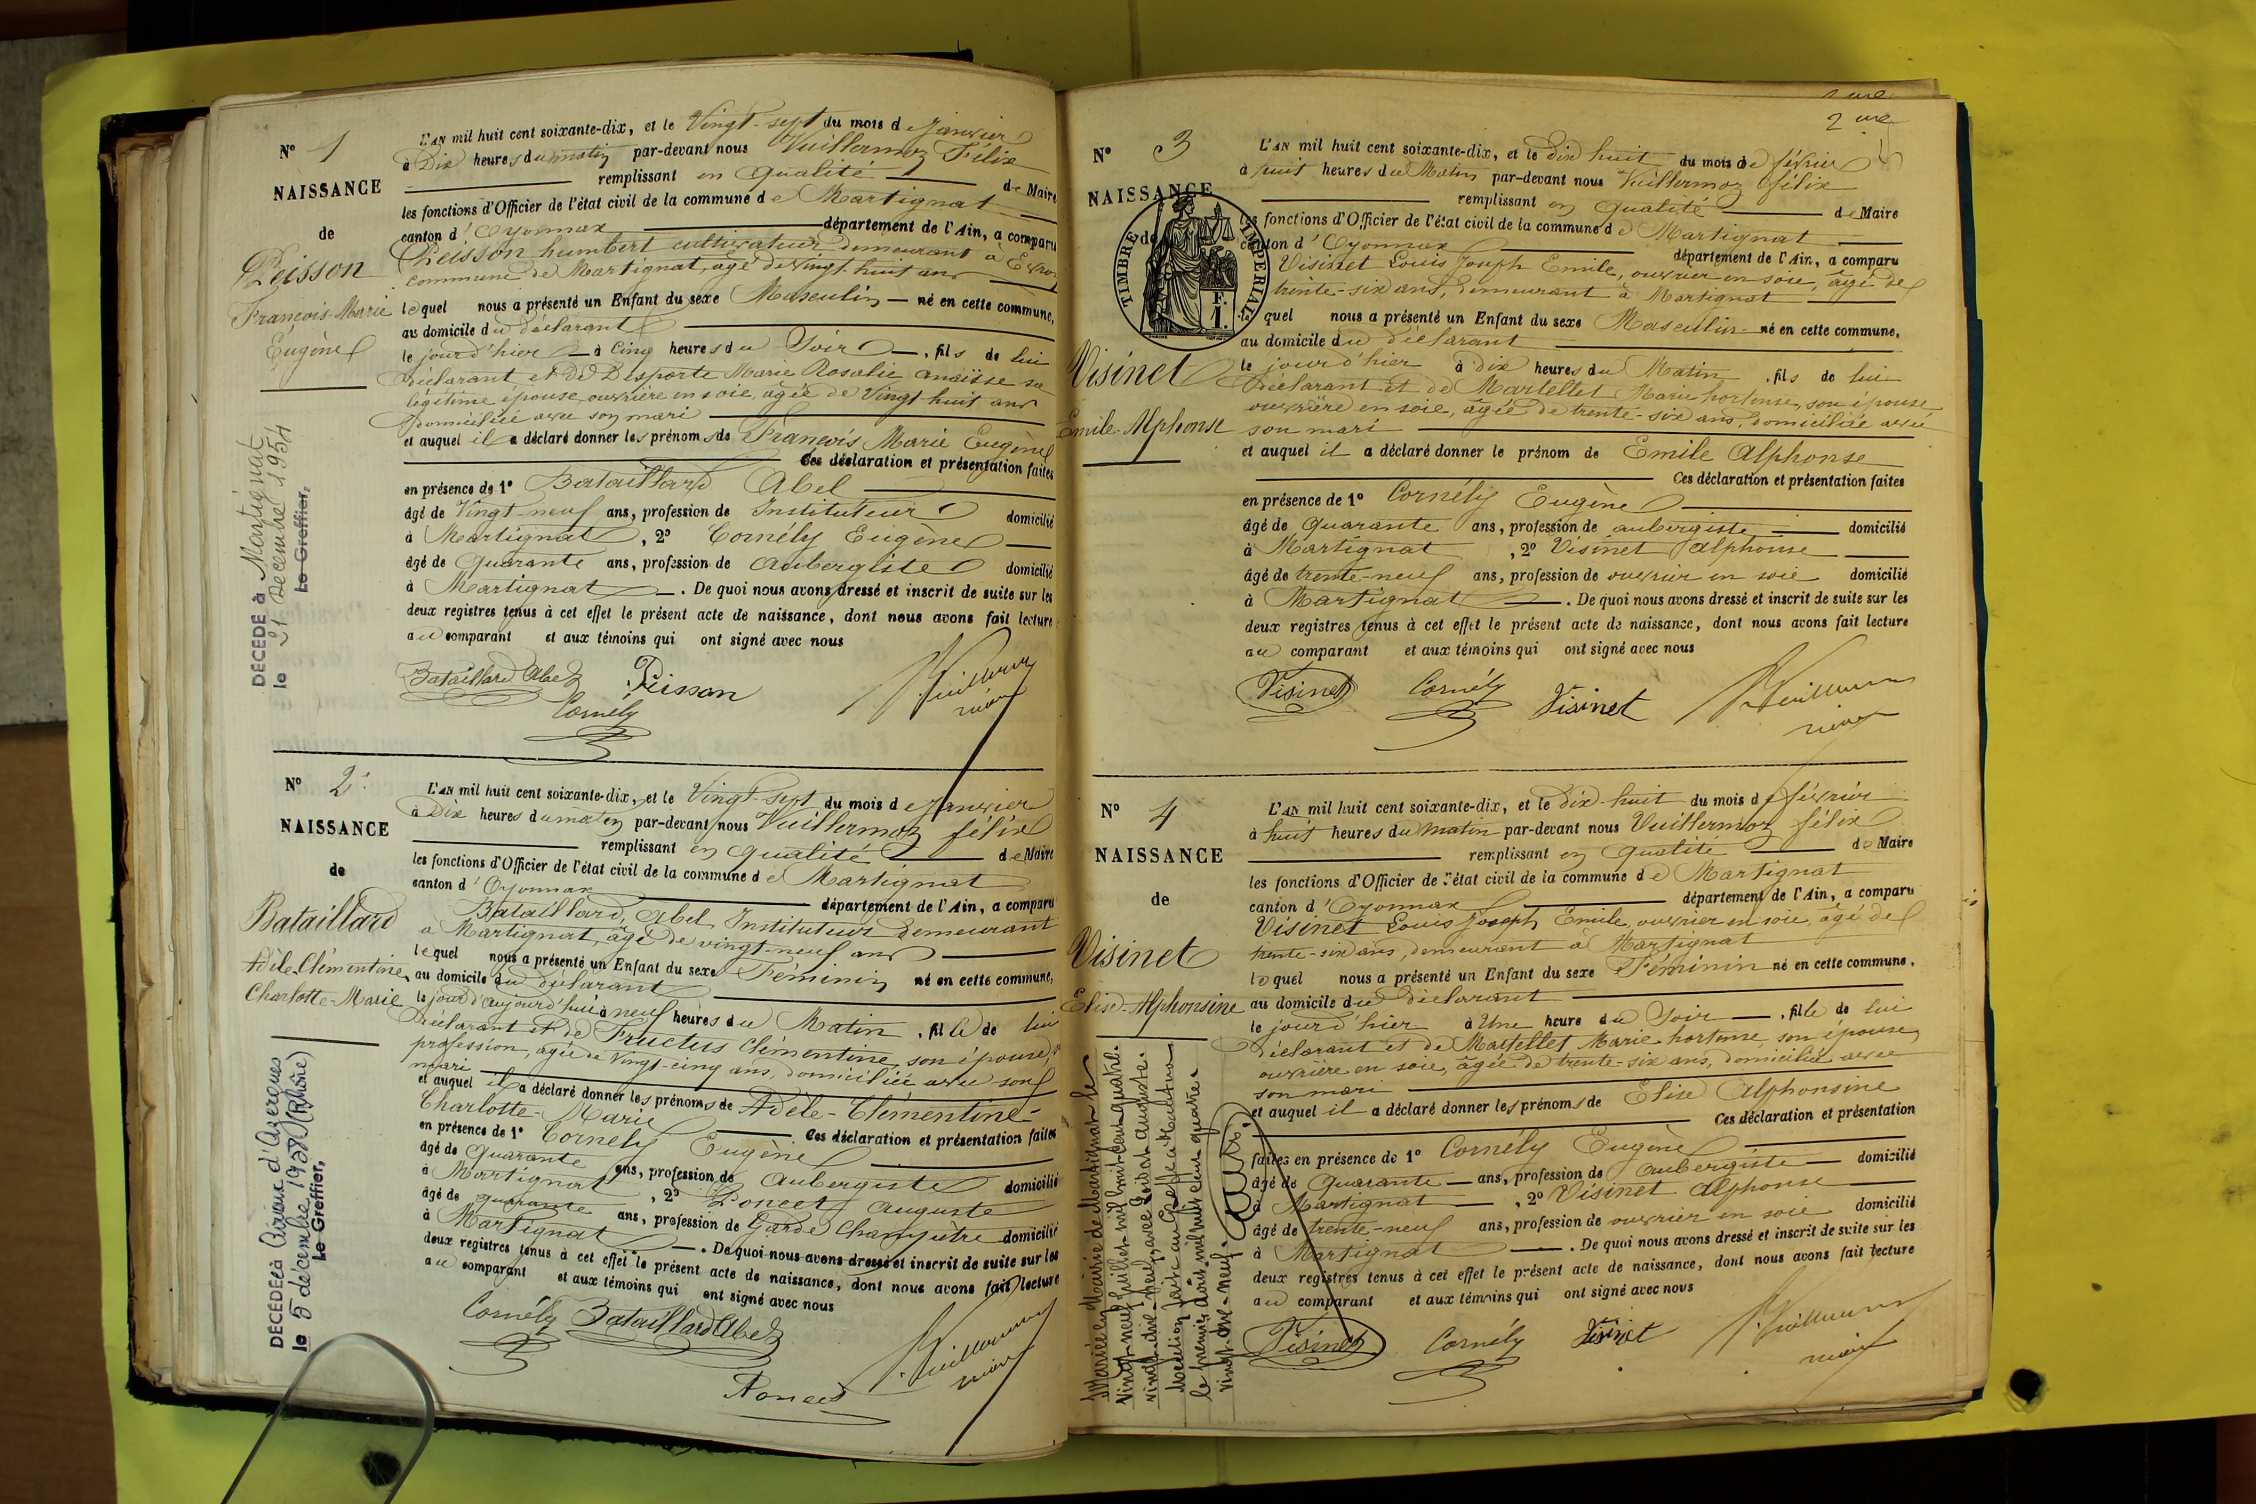 N° 1
NAISSANCE
de
Peisson
François-Marie
Eugène
DÉCÉDÉ à Martignat
le 21 Décembre 1954
Le Greffier,
L'AN mil huit cent soixante-dix, et le Vingt-sept du mois de Janvier
à Dix heures du matin par-devant nous Vuillermoz Félix
remplissant en qualité de Maire
les fonctions d'Officier de l'état civil de la commune de Martignat
canton d'Oyonnax département de l'Ain, a comparu
Peisson humbert cultivateur demeurant à
commune de Martignat, âgé de vingt huit ans
lequel nous a présenté un Enfant du sexe Masculin né en cette commune,
au domicile du déclarant
le jourd'hier à Cinq heures du Soir, fils de lui
déclarant et de Desporte Marie Rosalie sa
légitime épouse, ouvrière en soie, âgée de Vingt huit ans
domiciliée avec son mari
et auquel il a déclaré donner les prénoms de François Marie Eugène
Ces déclaration et présentation faites
en présence de 1° Bataillard Abel
âgé de Vingt-neuf ans, profession de Instituteur domicilié
à Martignat, 2° Cornély Eugène
âgé de Quarante ans, profession de Aubergiste domicilié
à Martignat. De quoi nous avons dressé et inscrit de suite sur les
deux registres tenus à cet effet le présent acte de naissance, dont nous avons fait lecture
au comparant et aux témoins qui ont signé avec nous
Bataillard Abel Peisson Vuillermoz
Cornély maire
N° 2
NAISSANCE
de
Bataillard
Adèle-Clémentine
Charlotte-Marie
DÉCÉDÉE à Civrieux d'Azergues
le 5 décembre (Rhône)
Le Greffier,
L'AN mil huit cent soixante-dix, et le Vingt-sept du mois de Janvier
à Dix heures du matin par-devant nous Vuillermoz félix
remplissant en qualité de Maire
les fonctions d'Officier de l'état civil de la commune de Martignat
canton d'Oyonnax département de l'Ain, a comparu
Bataillard, Abel, Instituteur demeurant
à Martignat, âgé de vingt-neuf ans
lequel nous a présenté un Enfant du sexe Féminin né en cette commune,
au domicile du déclarant
le jour d'aujourd'hui à neuf heures du Matin, fille de lui
déclarant et de Fructus Clémentine, son épouse,
profession, âgée de Vingt-cinq ans, domiciliée avec son
mari
et auquel il a déclaré donner les prénoms de Adèle-Clémentine-
Charlotte-Marie Ces déclaration et présentation faites
en présence de 1° Cornély Eugène
âgé de Quarante ans, profession de Aubergiste domicilié
à Martignat, 2° Poncet Auguste
âgé de quarante ans, profession de Garde Champêtre domicilié
à Martignat. De quoi nous avons dressé et inscrit de suite sur les
deux registres tenus à cet effet le présent acte de naissance, dont nous avons fait lecture
au comparant et aux témoins qui ont signé avec nous
Cornély Bataillard Abel Vuillermoz
maire
Poncet
2 me
N° 3
NAISSANCE
de
TIMBRE IMPÉRIAL
F.
1.
Visinet
Emile-Alphonse
L'AN mil huit cent soixante-dix, et le dix huit du mois de février
à huit heures du Matin par-devant nous Vuillermoz félix
remplissant en qualité de Maire
les fonctions d'Officier de l'état civil de la commune de Martignat
canton d'Oyonnax département de l'Ain, a comparu
Visinet Louis Joseph Emile, ouvrier en soie, âgé de
trente-six ans, demeurant à Martignat
lequel nous a présenté un Enfant du sexe Masculin né en cette commune,
au domicile du déclarant
le jourd'hier à dix heures du Matin, fils de lui
déclarant et de Martellet Marie hortense, son épouse
ouvrière en soie, âgée de trente-six ans, domiciliée avec
son mari
et auquel il a déclaré donner le prénom de Emile Alphonse
Ces déclaration et présentation faites
en présence de 1° Cornély Eugène
âgé de quarante ans, profession de aubergiste domicilié
à Martignat, 2° Visinet Alphonse
âgé de trente-neuf ans, profession de ouvrier en soie domicilié
à Martignat. De quoi nous avons dressé et inscrit de suite sur les
deux registres tenus à cet effet le présent acte de naissance, dont nous avons fait lecture
au comparant et aux témoins qui ont signé avec nous
Visinet Cornély Visinet Vuillermoz
maire
N° 4
NAISSANCE
de
Visinet
Elise-Alphonsine
Mariée en Mairie de Martignat le
vingt-neuf juillet mil huit cent quatre-
vingt-dix-neuf, avec Auguste.
Mention faite au Greffe à Nantua
le premier août mil huit cent quatre-
vingt-dix-neuf.
L'AN mil huit cent soixante-dix, et le dix-huit du mois de février
à huit heures du matin par-devant nous Vuillermoz félix
remplissant en qualité de Maire
les fonctions d'Officier de l'état civil de la commune de Martignat
canton d'Oyonnax département de l'Ain, a comparu
Visinet Louis Joseph Emile, ouvrier en soie, âgé de
trente-six ans, demeurant à Martignat
lequel nous a présenté un Enfant du sexe Féminin né en cette commune,
au domicile du déclarant
le jourd'hier à Une heure du Soir, fille de lui
déclarant et de Martellet Marie hortense son épouse,
ouvrière en soie, âgée de trente-six ans, domiciliée avec
son mari
et auquel il a déclaré donner les prénoms de Elise Alphonsine
Ces déclaration et présentation
faites en présence de 1° Cornély Eugène
âgé de Quarante ans, profession de aubergiste domicilié
à Martignat, 2° Visinet Alphonse
âgé de trente-neuf ans, profession de ouvrier en soie domicilié
à Martignat. De quoi nous avons dressé et inscrit de suite sur les
deux registres tenus à cet effet le présent acte de naissance, dont nous avons fait lecture
au comparant et aux témoins qui ont signé avec nous
Visinet Cornély Visinet Vuillermoz
maire